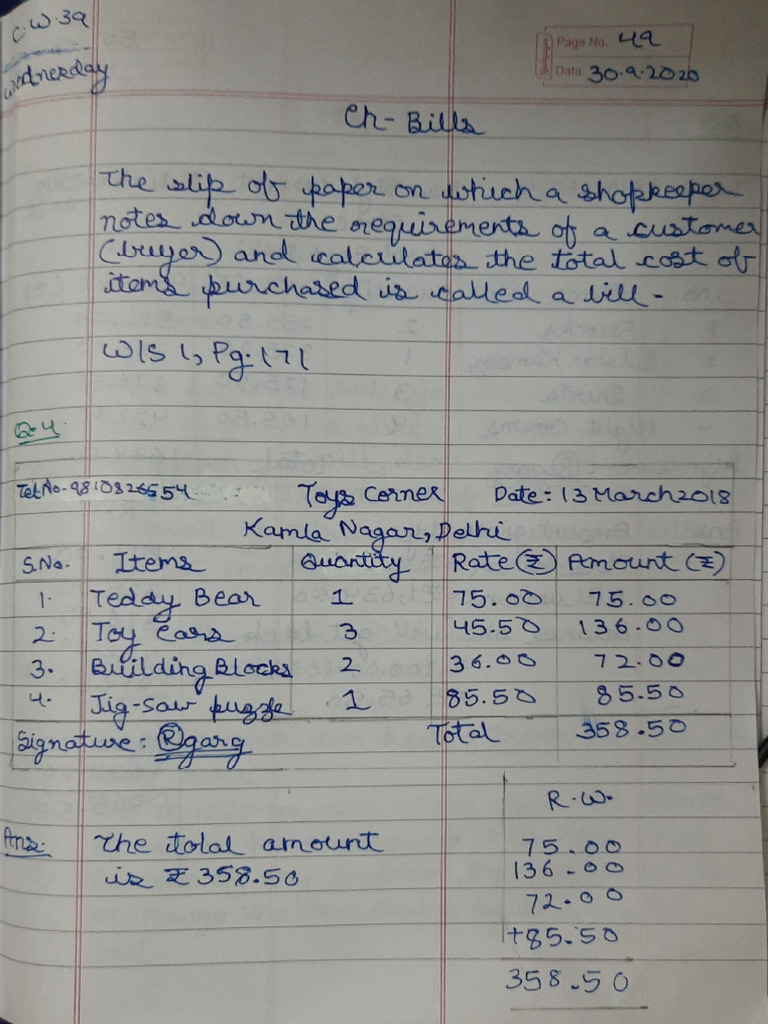 C.W.39
Wednesday
Page No. 49
Date: 30.9.2020
Ch- Bills
The slip of paper on which a shopkeeper
notes down the requirements of a customer
(buyer) and calculates the total cost of
items purchased is called a bill.
W/S 1, Pg.171
Q.4
Tel No.-9810826554 Toys Corner Date: 13 March 2018
Kamla Nagar, Delhi
S.No. Items Quantity Rate (₹) Amount (₹)
1. Teddy Bear 1 75.00 75.00
2. Toy cars 3 45.50 136.00
3. Building Blocks 2 36.00 72.00
4. Jig-saw puzzle 1 85.50 85.50
Signature: Rgarg Total 358.50
R.W.
Ans. The total amount
is ₹ 358.50
75.00
136.00
72.00
+85.50
358.50